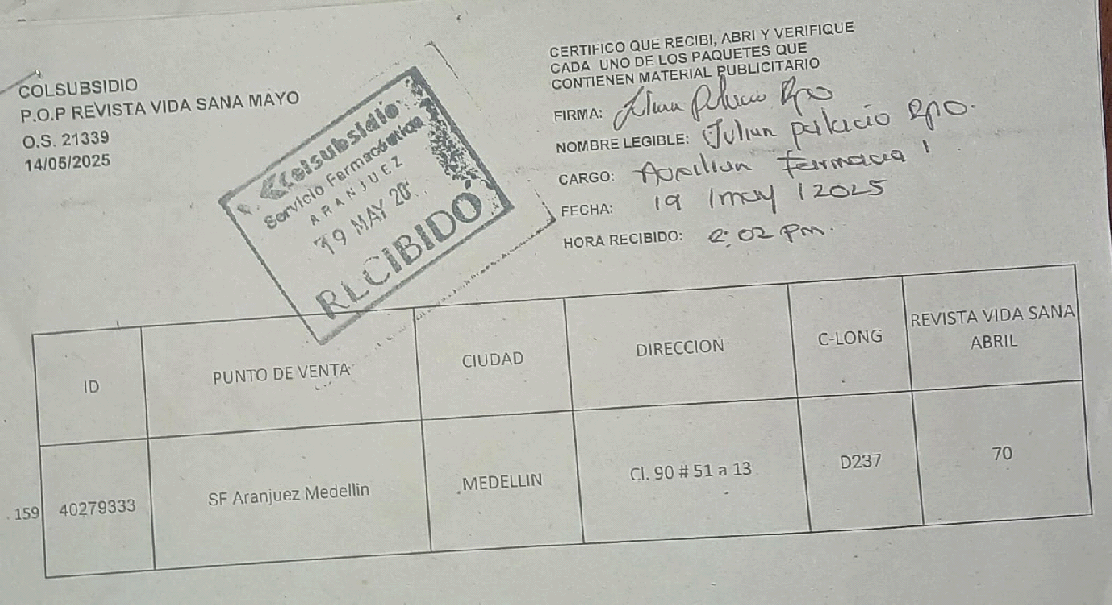 COLSUBSIDIO
P.O.P REVISTA VIDA SANA MAYO
O.S. 21339
14/05/2025
Colsubsidio
Servicio Farmacéutico
ARANJUEZ
19 MAY 20
RECIBIDO
CERTIFICO QUE RECIBI, ABRI Y VERIFIQUE
CADA UNO DE LOS PAQUETES QUE
CONTIENEN MATERIAL PUBLICITARIO
FIRMA: Palacio Rpo
NOMBRE LEGIBLE: Julian palacio Rpo.
CARGO: Auxiliar farmacia
FECHA: 19 / may / 2025
HORA RECIBIDO: 2:02 pm.
ID
PUNTO DE VENTA
CIUDAD
DIRECCION
C-LONG
REVISTA VIDA SANA
ABRIL
159
40279333
SF Aranjuez Medellin
MEDELLIN
Cl. 90 # 51 a 13
D237
70